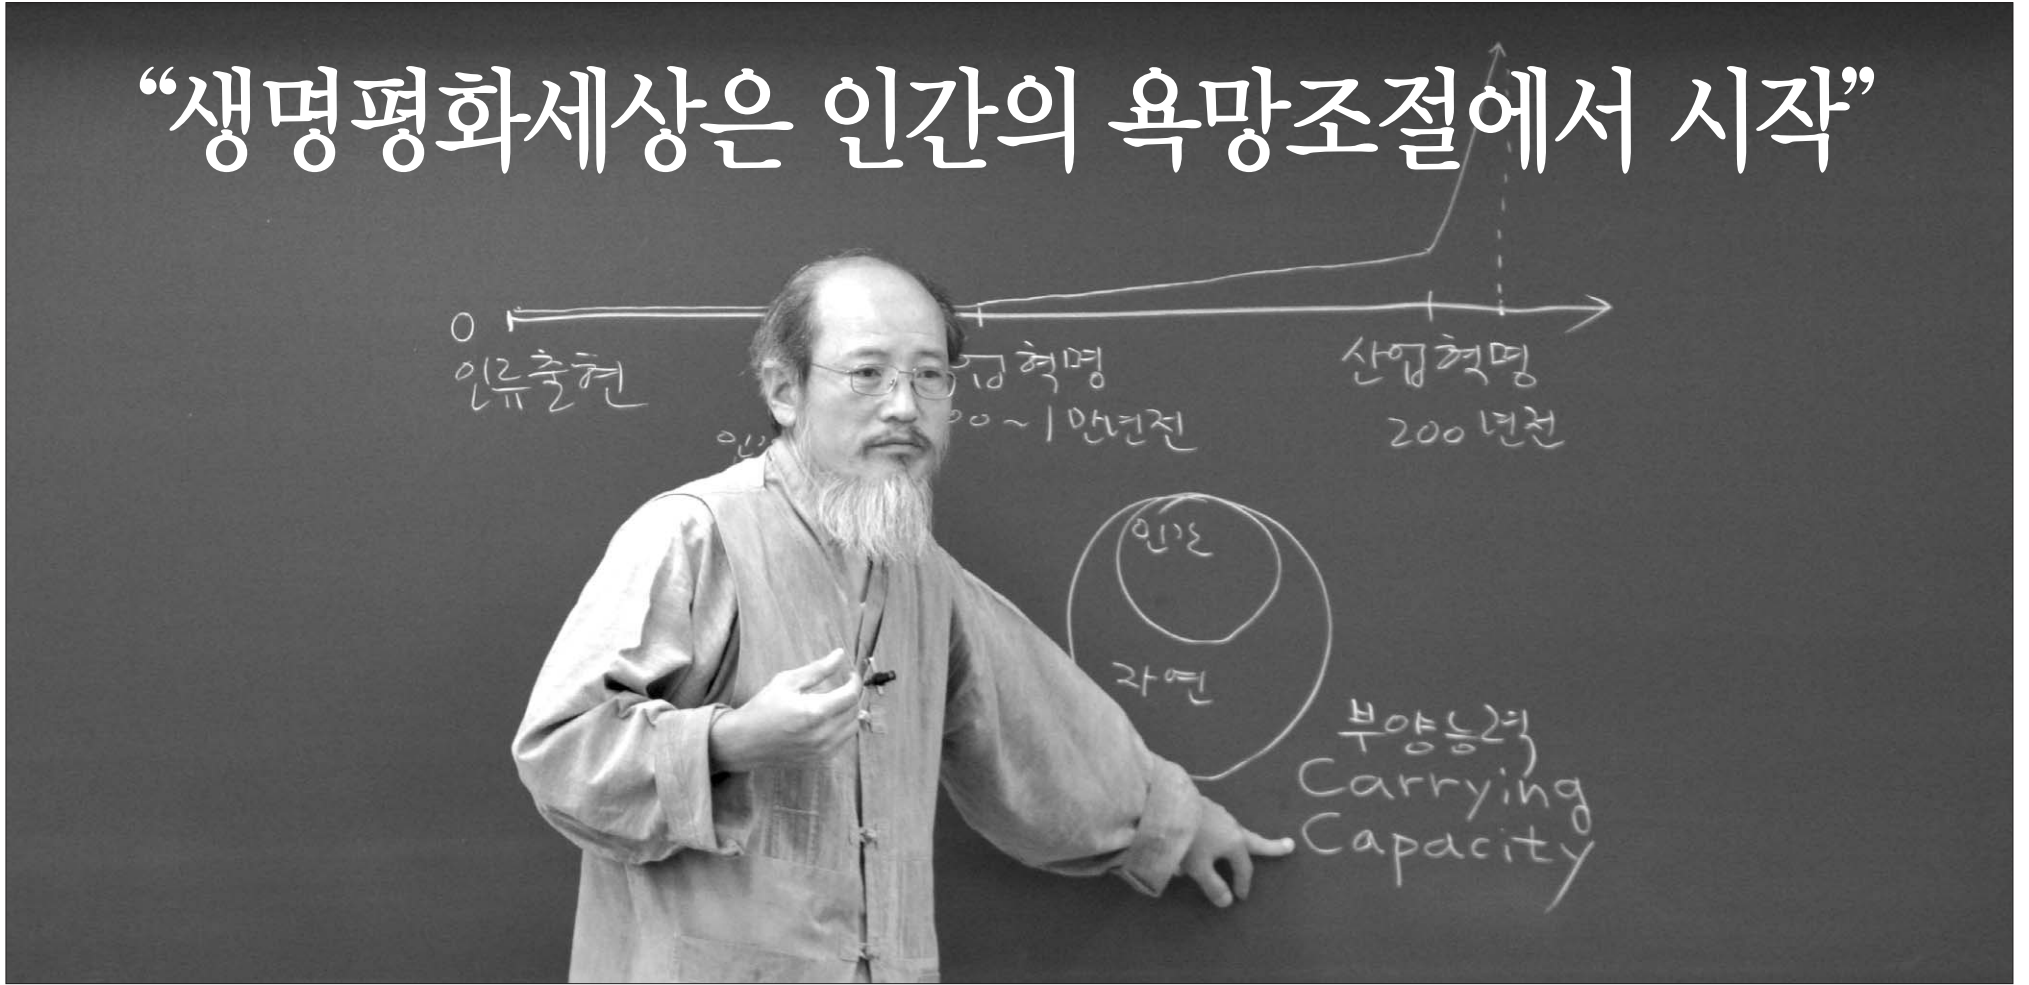 “생명평화세상은 인간의 욕망조절에서 시작”
0
인류출현
혁명
~1만년전
산업혁명
200년전
인간
자연
부양능력
Carrying
Capacity